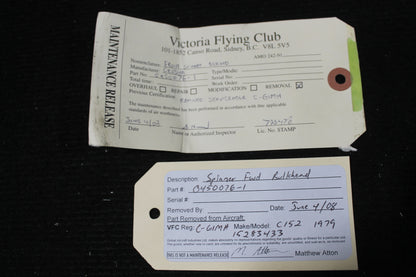 Victoria Flying Club
101-1852 Canso Road, Sidney, B.C. V8L 5V5
MAINTENANCE RELEASE
AMO 242-91
Nomenclature:
Manufacturer: Cessna
Type/Model:
Part No.: 0450076-1
Serial No.:
Total time:
Work Order:
OVERHAUL REPAIR MODIFICATION REMOVAL
Previous Certification:
REMOVED SERVICEABLE C-GIMH
The maintenance described has been performed in accordance with the applicable
standards of air worthiness.
June 4/08
Date
Name or Authorized Inspector
Lic. No. STAMP
Description: Spinner Fwd Bulkhead
Part #: 0450076-1
Serial #:
Removed By: Date: June 4/08
Part Removed from Aircraft
VFC Reg: C-GIMH Make/Model: C152 1979
15283433
THIS IS NOT A MAINTENANCE RELEASE
Matthew Atton